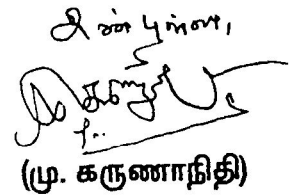 அன்புள்ள,
(மு. கருணாநிதி)